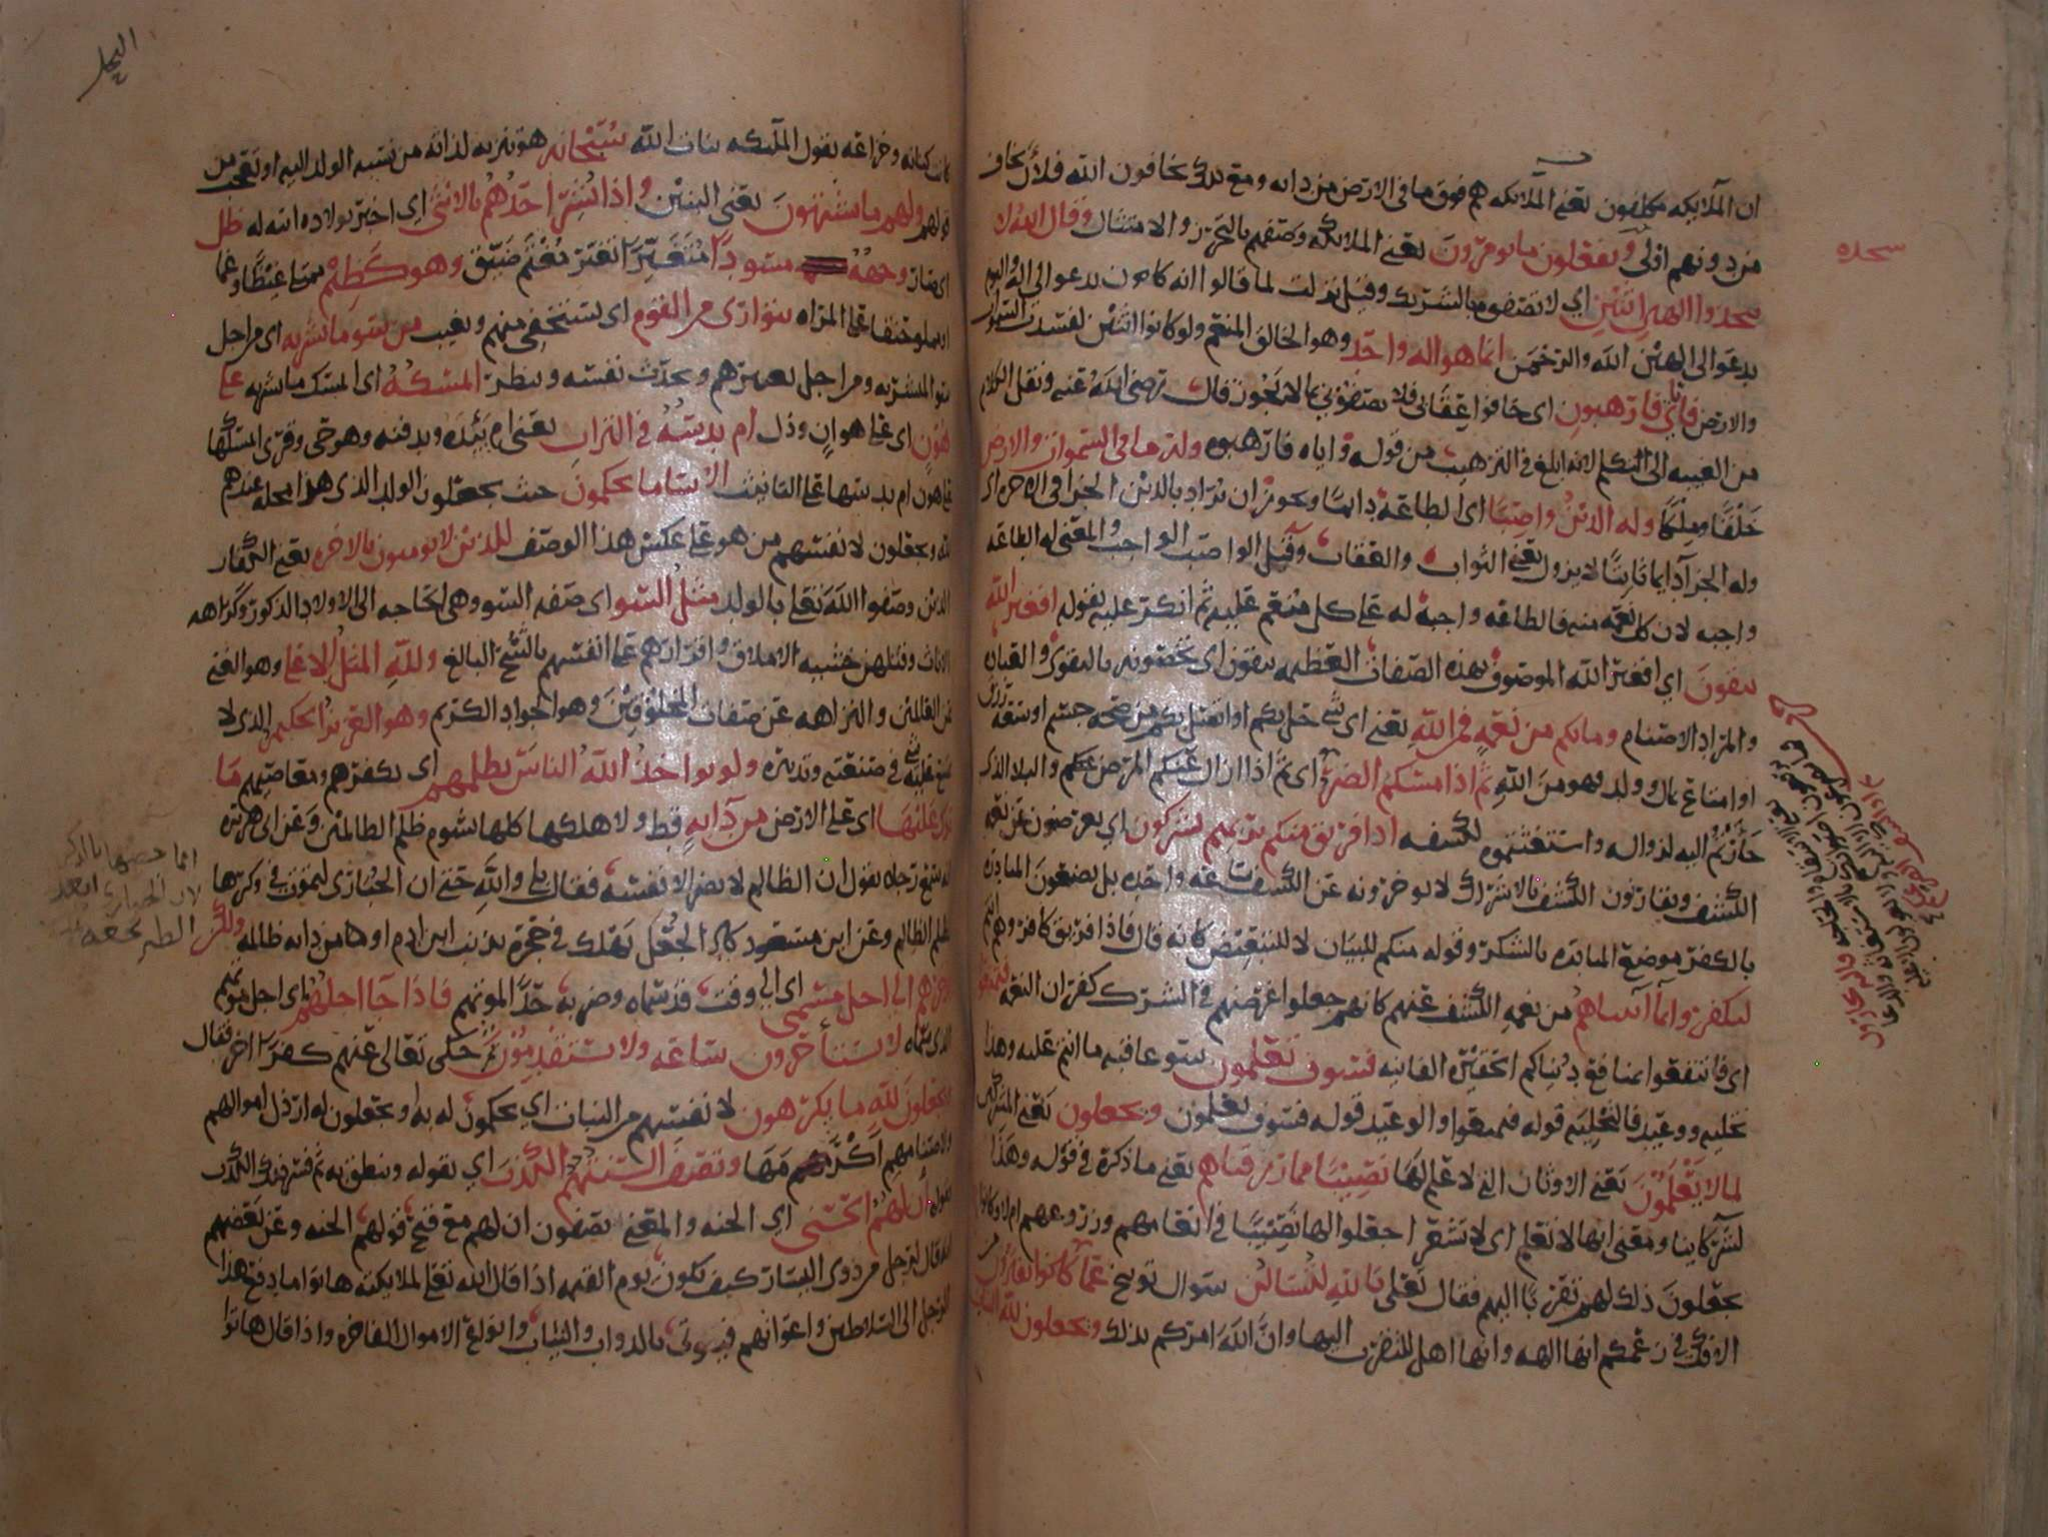 ان الملايكه مكلفون يعني الملايكه هم فوق ما في الارض من دابه ومع ذلك يخافون الله فلأن يخاف
من دونهم اولى ويفعلون ما يومرون يعني الملايكه وصفهم بالتحرز والامتثال وقال الله لا
تتخذوا الهين اثنين اي لا تصفوه بالشريك وقيل نزلت لما قالوا انه كان يدعو الى اله واليوم
يدعو الى الهين الله والرحمن انما هو اله واحد وهو الخالق المنعم ولو كانوا اثنين لفسدت السموات
والارض فاياي فارهبون اي خافوا عقابي فلا تصفوني بما لا يجوز قال رضي الله عنه ونقل الكلام
من الغيبه الى التكلم لانه ابلغ في الترهيب من قوله واياه فارهبوه وله ما في السموات والارض
خلقا وملكا وله الدين واصبا اي الطاعة دايما ويجوز ان يراد بالدين الجزا في الاخره اي
وله الجزآ دايما ثابتا لا يزول يعني الثواب والعقاب وقيل الواصب الواجب والمعنى له الطاعه
واجبه لان كل نعمه منه فالطاعه واجبة له على كل منعم عليه ثم انكر عليه بقوله افغير الله
تتقون اي افغير الله الموصوف بهذه الصفات العظيمه تتقون اي تخصونه بالتقوى
والمراد الاصنام وما بكم من نعمة فمن الله يعني اي شي حل بكم او اتصل بكم من صحة جسم او سعة رزق
او امتاع بمال وولد فهو من الله ثم اذا مسكم الضر
اليه لزواله واستغثتموه لكشفه اذا فريق منكم بربهم يشركون اي يعرضون عن نعمه
الكشف بالاشراك
بالكفر موضع بالشكر وقوله منكم للبيان لا للتبعيض كانه قال فاذا فريق كافر وهم انتم
ليكفروا بما آتيناهم من نعمة الكشف عنهم كانهم جعلوا غرضهم في الشرك كفران النعمه فتمتعوا
اي فانتفعوا بمنافع دنياكم الحقيره الفانيه فسوف تعلمون سو عاقبه ما انتم عليه وهذا
تخليه ووعيد فالتخليه قوله فتمتعوا والوعيد قوله فسوف تعلمون ويجعلون يعني المشركين
لما لا يعلمون يعني الاوثان التي لا علم لها نصيبا مما رزقناهم يعني ما ذكره في قوله وهذا
لشركاينا ومعنى انها لا تعلم اي لا تشعر اجعلوا لها نصيبا في انعامهم وزروعهم ام لا وكانوا
يجعلون ذلك لهم تقربا اليهم فقال تعلى تالله لتسالن سوال توبيخ عما كنتم تفترون من
الافك في زعمكم انها الهه وانها اهل للتقرب اليها وان الله امركم بذلك ويجعلون لله البنات
سجده
النحل
كانت كنانه وخزاعه تقول الملئكه بنات الله سبحانه هو تنزيه لذاته من نسبه الولد اليه او تعجب من
قولهم ولهم ما يشتهون يعني البنين واذا بشر احدهم بالانثى اي اخبر بولاده ابنه له ظل
اي صار وجهه مسودا متغيرا مغتم ضيق وهو كظيم ممتلي غيظا وغما
على المراه يتوارى من القوم اي يستخفي منهم ويغيب من سو ما بشر به اي من اجل
سو المبشر به ومن اجل تعييرهم ويحدث نفسه وينظر ايمسكه اي ايمسك ما بشر به على
هون اي على هوان وذل ام يدسه في التراب يعني ام يئده ويدفنه وهو حي وقري ايمسكها
على هون ام يدسها على التانيث الا سا ما يحكمون حيث يجعلون الولد الذي هذا محله عندهم
لله ويجعلون لانفسهم من هو على عكس هذا الوصف للذين لا يومنون بالاخره يعني الكفار
الذين وصفوا الله تعلى بالولد مثل السو اي صفه السو وهي الحاجه الى الاولاد الذكور وكراهه
الاناث وقتلهن خشيه الاملاق واقرارهم على انفسهم بالشح البالغ ولله المثل الاعلى وهو الغني
عن العالمين والنزاهه عن صفات المخلوقين وهو الجواد الكريم وهو العزيز الحكيم الذي لا
عليه شي في صنعته وتدبيره ولو يواخذ الله الناس بظلمهم اي بكفرهم ومعاصيهم ما
ترك عليها اي على الارض من دآبة قط ولاهلكها كلها بشوم ظلم الظالمين وعن ابي هريره
انه سمع رجلا يقول ان الظالم لا يضر الا نفسه فقال بلى والله حتى ان الحبارى لتموت في وكرها
بظلم الظالم وعن ابن مسعود كاد الجعل يهلك في حجره بذنب ابن ادم او هما من دابه ظالمه ولكن
يوخرهم الى اجل مسمى اي الى وقت قد سماه وضربه حدا لموتهم فاذا جآ اجلهم اي اجل موتهم
الذي سماه لا يستأخرون ساعه ولا يستقدمون ثم حكى تعالى عنهم كفرا اخر فقال
ويجعلون لله ما يكرهون لانفسهم من البنات اي يحكمون له به او يجعلون له ارذل اموالهم
ولاصنامهم اكرمها وتصف السنتهم الكذب اي تقوله وتنطق به ثم فسر ذلك الكذب
بقوله أن لهم الحسنى اي الجنه والمعنى يصفون ان لهم مع قبح قولهم الجنه وعن بعضهم
انه قال لرجل من ذوي اليسار كيف تكون يوم القيمه اذا قال الله تعلى لملايكته هاتوا ما دفع هذا
الرجل الى السلاطين واعوانهم فيوتى بالدواب والثياب وانواع الاموال الفاخره واذا قال هاتوا
انما خصها بالذكر
لان الحبارى ابعد
الطير نجعه